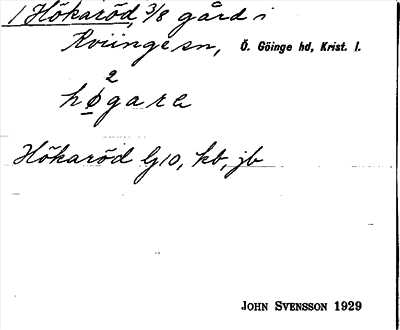 1 Hökaröd, 3/8 gård i
Kviinge sn, Ö. Göinge hd, Krist. l.
2
høgare
Hökaröd G10, kb, jb
JOHN SVENSSON 1929